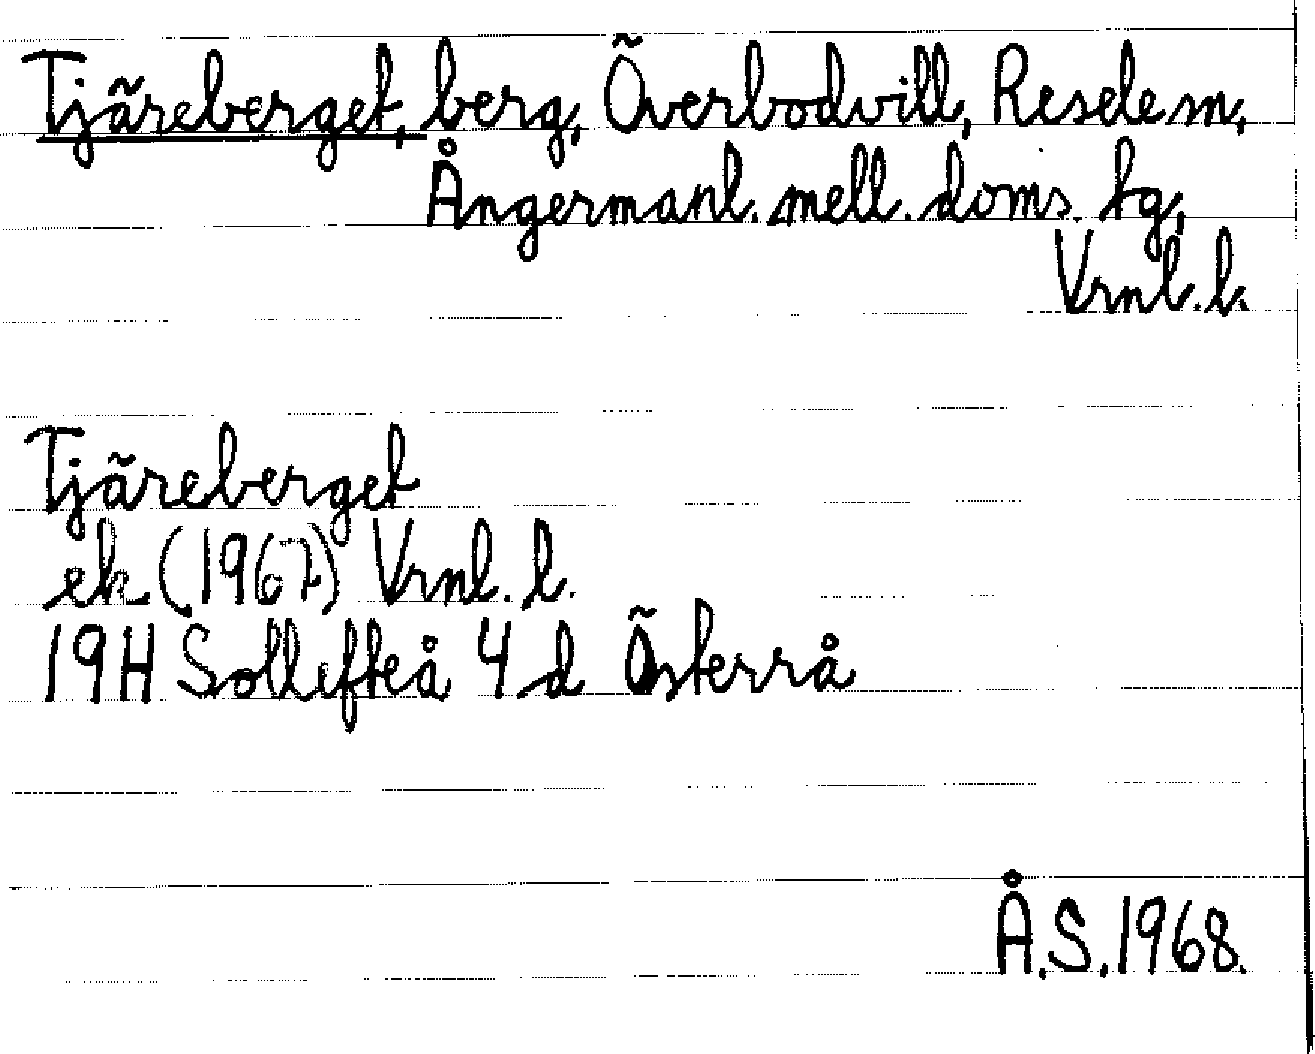 Tjäreberget, berg, Överbodvill, Resele sn,
Ångermanl. mell. doms. tg,
Vrnl. l.
Tjäreberget
ek (1967) Vrnl. l.
19H Sollefteå 4 d Österrå
Å.S. 1968.